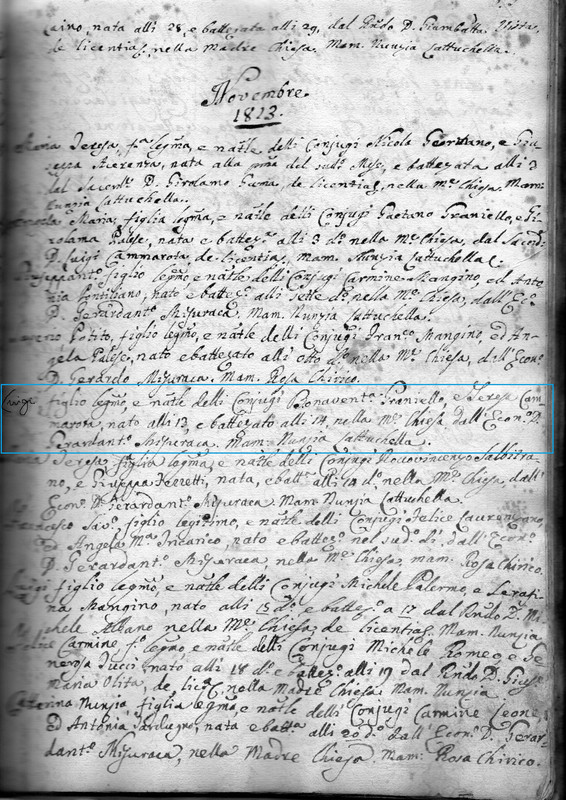 nata alli 28, e battezata alli 29, dal Rndo D. Giambatta
de licentia, nella Madre Chiesa. Mam. Nunzia Cattuchella.
Novembre.
1813.
Teresa, fa legma, e natle delli Conjugi Nicola e
nata alla del sudo Mese, e battezata alli 3
dal D. Girolamo de licentia, nella Me Chiesa. Mam:
Nunzia Cattuchella.
Maria, figlia legma, e natle delli Conjugi Gaetano Graniello, e Gi-
rolama Palese, nata e batteza alli 3 do nella Me Chiesa, dal
D. Luigi Cammarota, de licentia, mam. Nunzia Cattuchella.
figlio legmo, e natle delli Conjugi Carmine Mangino, ed Anto-
nia nato e battezo alli sette do nella Me Chiesa, dall' Ecomo
D. Gerardanto Misuraca. Mam. Nunzia Cattuchella.
Potito, figlio legmo, e natle delli Conjugi Franco Mangino, ed An-
gela Palese, nato e battezato alli otto do nella Me Chiesa, dall' Econo
D. Gerardo Misuraca. Mam. Rosa Chirico.
figlio legmo, e natle delli Conjugi Bonaventa Graniello, e Teresa Cam-
marota, nato alli 13, e battezato alli 14, nella Me Chiesa dall' Econo D.
Gerardanto Misuraca. Mam. Nunzia Cattuchella.
Teresa, figlia legma, e natle delli Conjugi Rocovincenzo
no, e Giuseppa nata, e batta alli 14 do nella Me Chiesa, dall'
Econo D. Gerardanto Misuraca. Mam. Nunzia Cattuchella.
Francesco Savo, figlio legitimo, e natle delli Conjugi Felice
ed Angela Ma nato e battezo nel sudo dì, dall' Econo
D. Gerardanto Misuraca, nella Me Chiesa, mam. Rosa Chirico.
Luigi figlio legmo, e natle delli Conjugi Michele Palermo, e Serafi-
na Mangino, nato alli 15 do e battezo a 17 dal Rndo D. Mi-
chele Albano nella Me Chiesa, de licentia. Mam. Nunzia
Carmine fo legmo, e natle delli Conjugi Michele Romeo, e Ge-
nerosa nato alli 18 do e battezo alli 19 dal Rndo D. Giuse
Maria Olita, de lica nella Madre Chiesa. Mam. Nunzia
Caterina Nunzia, figlia legma, e natle delli Conjugi Carmine Leone,
ed Antonia nata, e batta alli 20 do dall' Econo D. Gerar-
danto Misuraca, nella Madre Chiesa. Mam: Rosa Chirico.